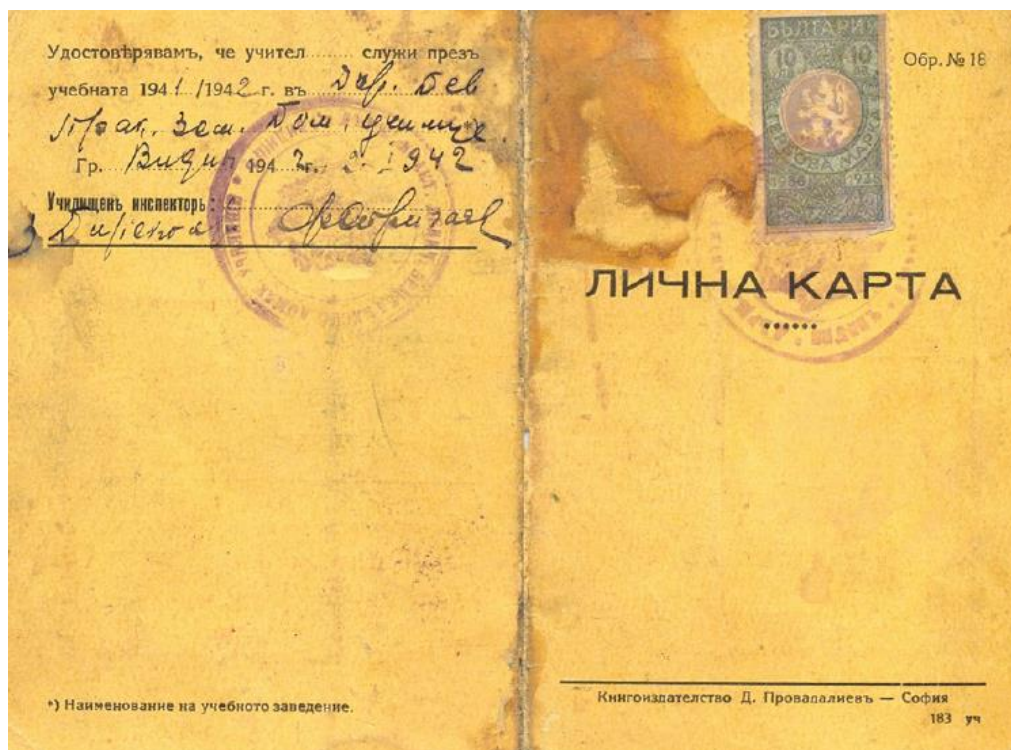 Удостовѣрявамъ, че учител........ служи презъ
учебната 1941 /1942 г. въ Дър.
Прак. Зем. Дом. училище *)
Гр. Видин 1942 г. I 942
Училищенъ инспекторъ:
*) Наименование на учебното заведение.
БЪЛГАРИЯ
10 10
ГЕРБОВА МАРКА
Обр. № 18
ЛИЧНА КАРТА
Книгоиздателство Д. Провадалиевъ — София
183 уч